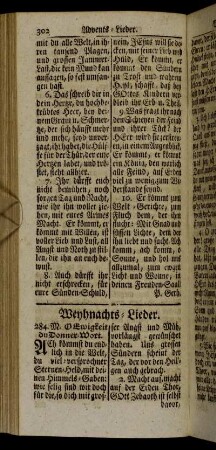 302 Advents-Lieder.
mit du alle Welt, in ih-
ren tausend Plagen,
und großen Jammer-
Last, die kein Mund kan
aussagen, so fest umfan-
gen hast.
6. Das schreib dir in
dein Hertze, du hochbe-
trübtes Heer, bey de-
nen Gram u. Schmertze,
der sich häufft mehr
und mehr, seyd unver-
zagt, ihr habet, die Hülf-
fe für der Thür, der eure
Hertzen labet, und trö-
stet, steht allhier.
7. Ihr dürfft euch
nicht bemühen, noch
sorgen Tag und Nacht,
wie ihr ihn wollet zie-
hen, mit eures Armes
Macht. Er kömmt, er
kömmt mit Willen, ist
voller Lieb und Lust, all
Angst und Noth zu stil-
len, die ihm an euch be-
wust.
8. Auch dürfft ihr
nicht erschrecken, für
eure Sünden-Schuld,
nein, JEsus will sie de-
cken, mit seiner Lieb und
Huld, Er kommt, er
kommt den Sündern
zu Trost und wahrem
Heyl, schafft, daß bey
GOttes Kindern ver-
bleib ihr Erb u. Theil.
9. Was fragt ihr nach
dem Schreyen der Feind
und ihrer Tück? der
HErr wird sie zerstreu-
en, in einem Augenblick.
Er kommt, er kommt
ein König, dem warlich
alle Feind, auf Erden
viel zu wenig, zum Wi-
derstande seynd.
10. Er kommt zum
Welt-Gerichte, zum
Fluch dem, der ihm
flucht, mit Gnad und
süssem Lichte, dem, der
ihn liebt und sucht. Ach
komm, ach komm, o
Sonne, und hol uns
allzumal, zum ewgen
Licht und Wonne, in
deinen Freuden-Saal
P. Gerh.
Weyhnachts-Lieder.
284. M. O Ewigkeit
du Donner-Wort.
ACh kömmst du end-
lich in die Welt,
du viel-versprochner
Sternen-Held, mit dei-
nen Himmels-Gaben:
wie selig sind wir doch
für die, so dich mit gros-
ser Angst und Müh,
vorlängst gewünschet
haben. Uns großen
Sündern scheint der
Tag, der vor den Heil-
gen auch gebrach.
2. Macht auf, macht
auf der Erden Thor,
GOtt Zebaoth ist selbst
davor,